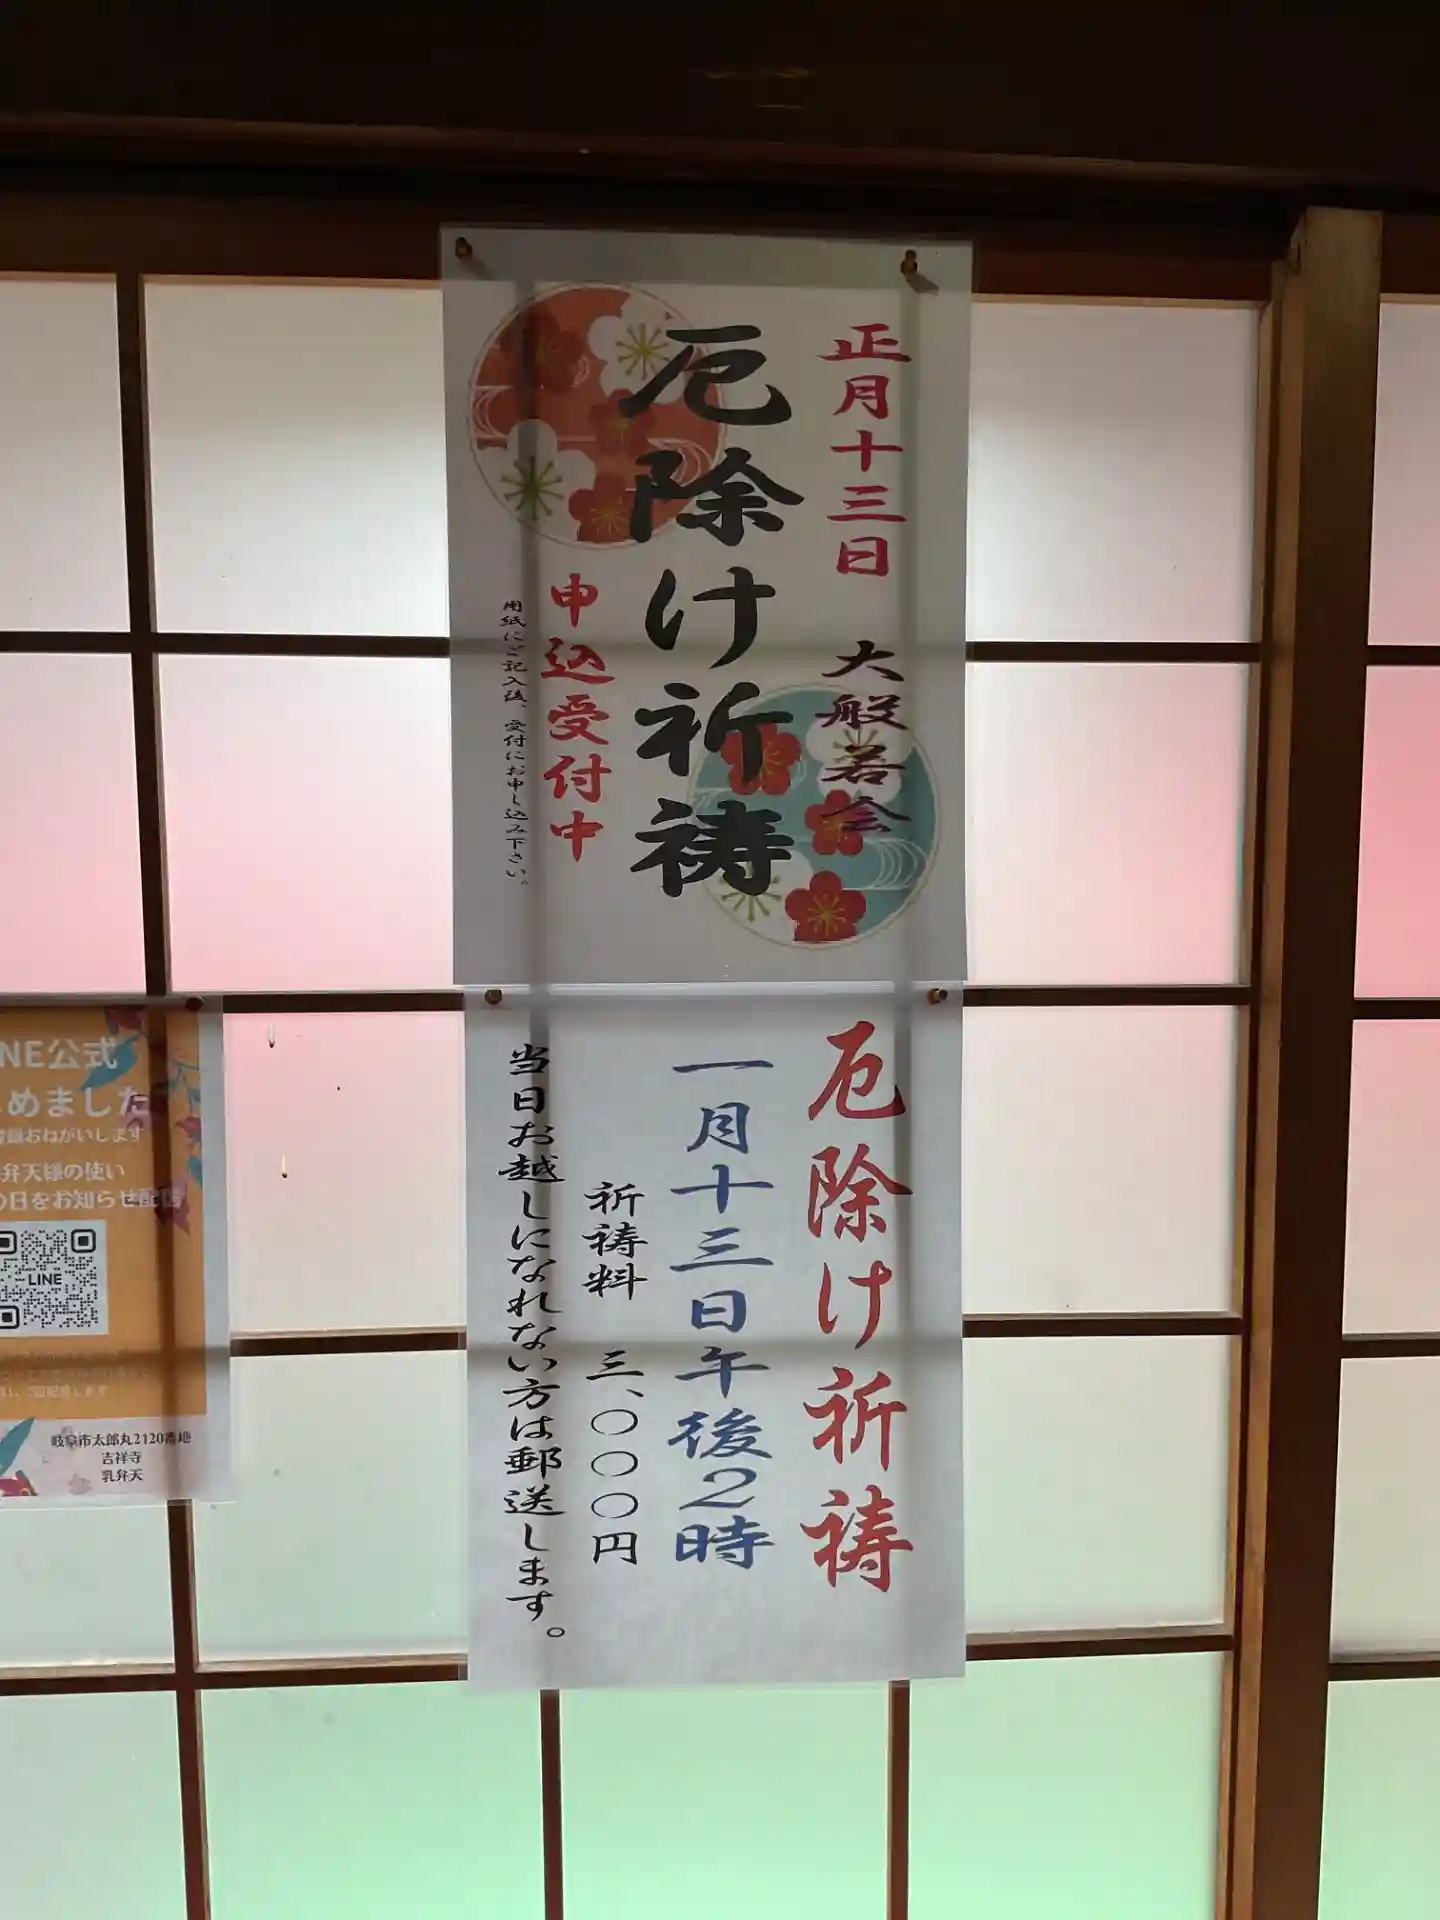 正月十三日　大般若会
厄除け祈祷
申込受付中
用紙にご記入後、受付にお申し込み下さい。
厄除け祈祷
一月十三日午後2時
祈祷料　三、〇〇〇円
当日お越しになれない方は郵送します。
NE公式
めました
録おねがいします
弁天様の使い
の日をお知らせ配信
LINE
岐阜市太郎丸2120番地
吉祥寺
乳弁天